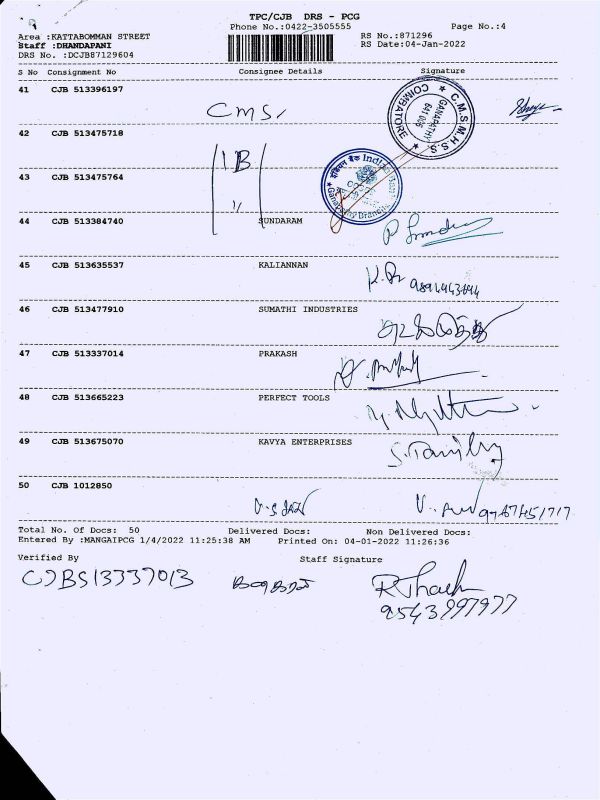 TPC/CJB DRS - PCG
Phone No.:0422-3505555 Page No.:4
Area :KATTABOMMAN STREET RS No.:871296
Staff :DHANDAPANI RS Date:04-Jan-2022
DRS No. :DCJB87129604
S No Consignment No Consignee Details Signature
41 CJB 513396197
CMS,
C.M.S.M.H.S.S. COIMBATORE
GANAPATHY
641 006
42 CJB 513475718
IB
43 CJB 513475764
"
इंडियन बैंक Indian
Ganapathy Branch
44 CJB 513384740 SUNDARAM
45 CJB 513635537 KALIANNAN
46 CJB 513477910 SUMATHI INDUSTRIES
47 CJB 513337014 PRAKASH
48 CJB 513665223 PERFECT TOOLS
49 CJB 513675070 KAVYA ENTERPRISES
50 CJB 1012850
Total No. Of Docs: 50 Delivered Docs: Non Delivered Docs:
Entered By :MANGAIPCG 1/4/2022 11:25:38 AM Printed On: 04-01-2022 11:26:36
Verified By Staff Signature
CJB513337013
9543997977